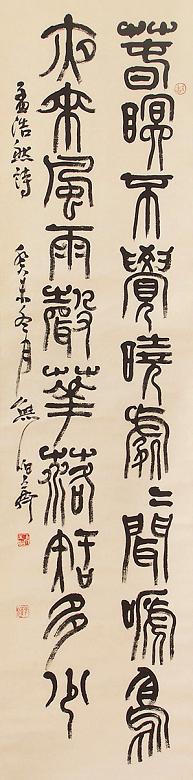 春眠不覺曉處〻聞啼鳥
夜來風雨聲華落知多少
孟浩然詩 癸未冬月 無